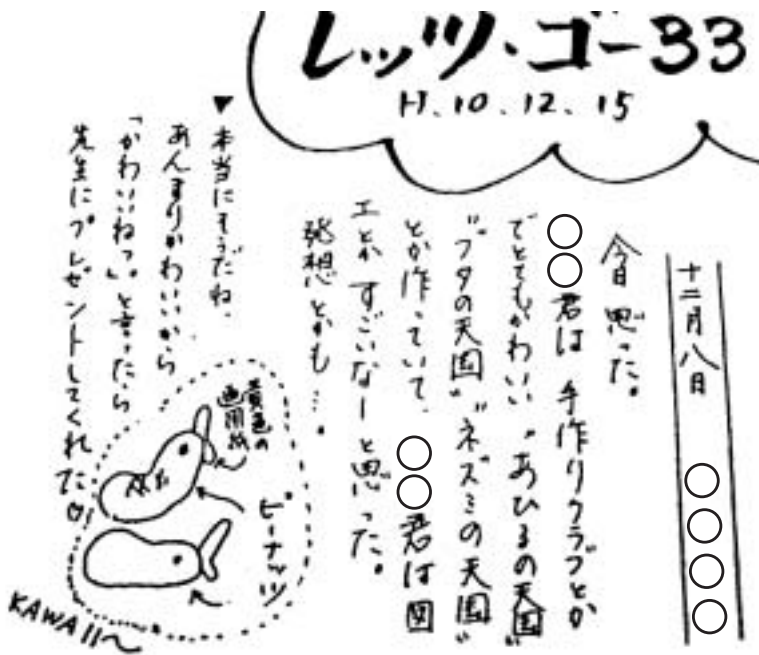 レッツ・ゴー33
H.10.12.15
十二月八日 ○○○○
今日思った。
○○君は手作りクラブとか
でとてもかわい〃あひるの天国〃
〃ブタの天国〃〃ネズミの天国〃
とか作っていて、○○君は図
工とかすごいなーと思った。
発想とかも…。
▼本当にそうだね。
あんまりかわいいから
「かわいいねっ」と言ったら
先生にプレゼントしてくれた♡!
黄色の
画用紙
ピーナッツ
KAWAII〜